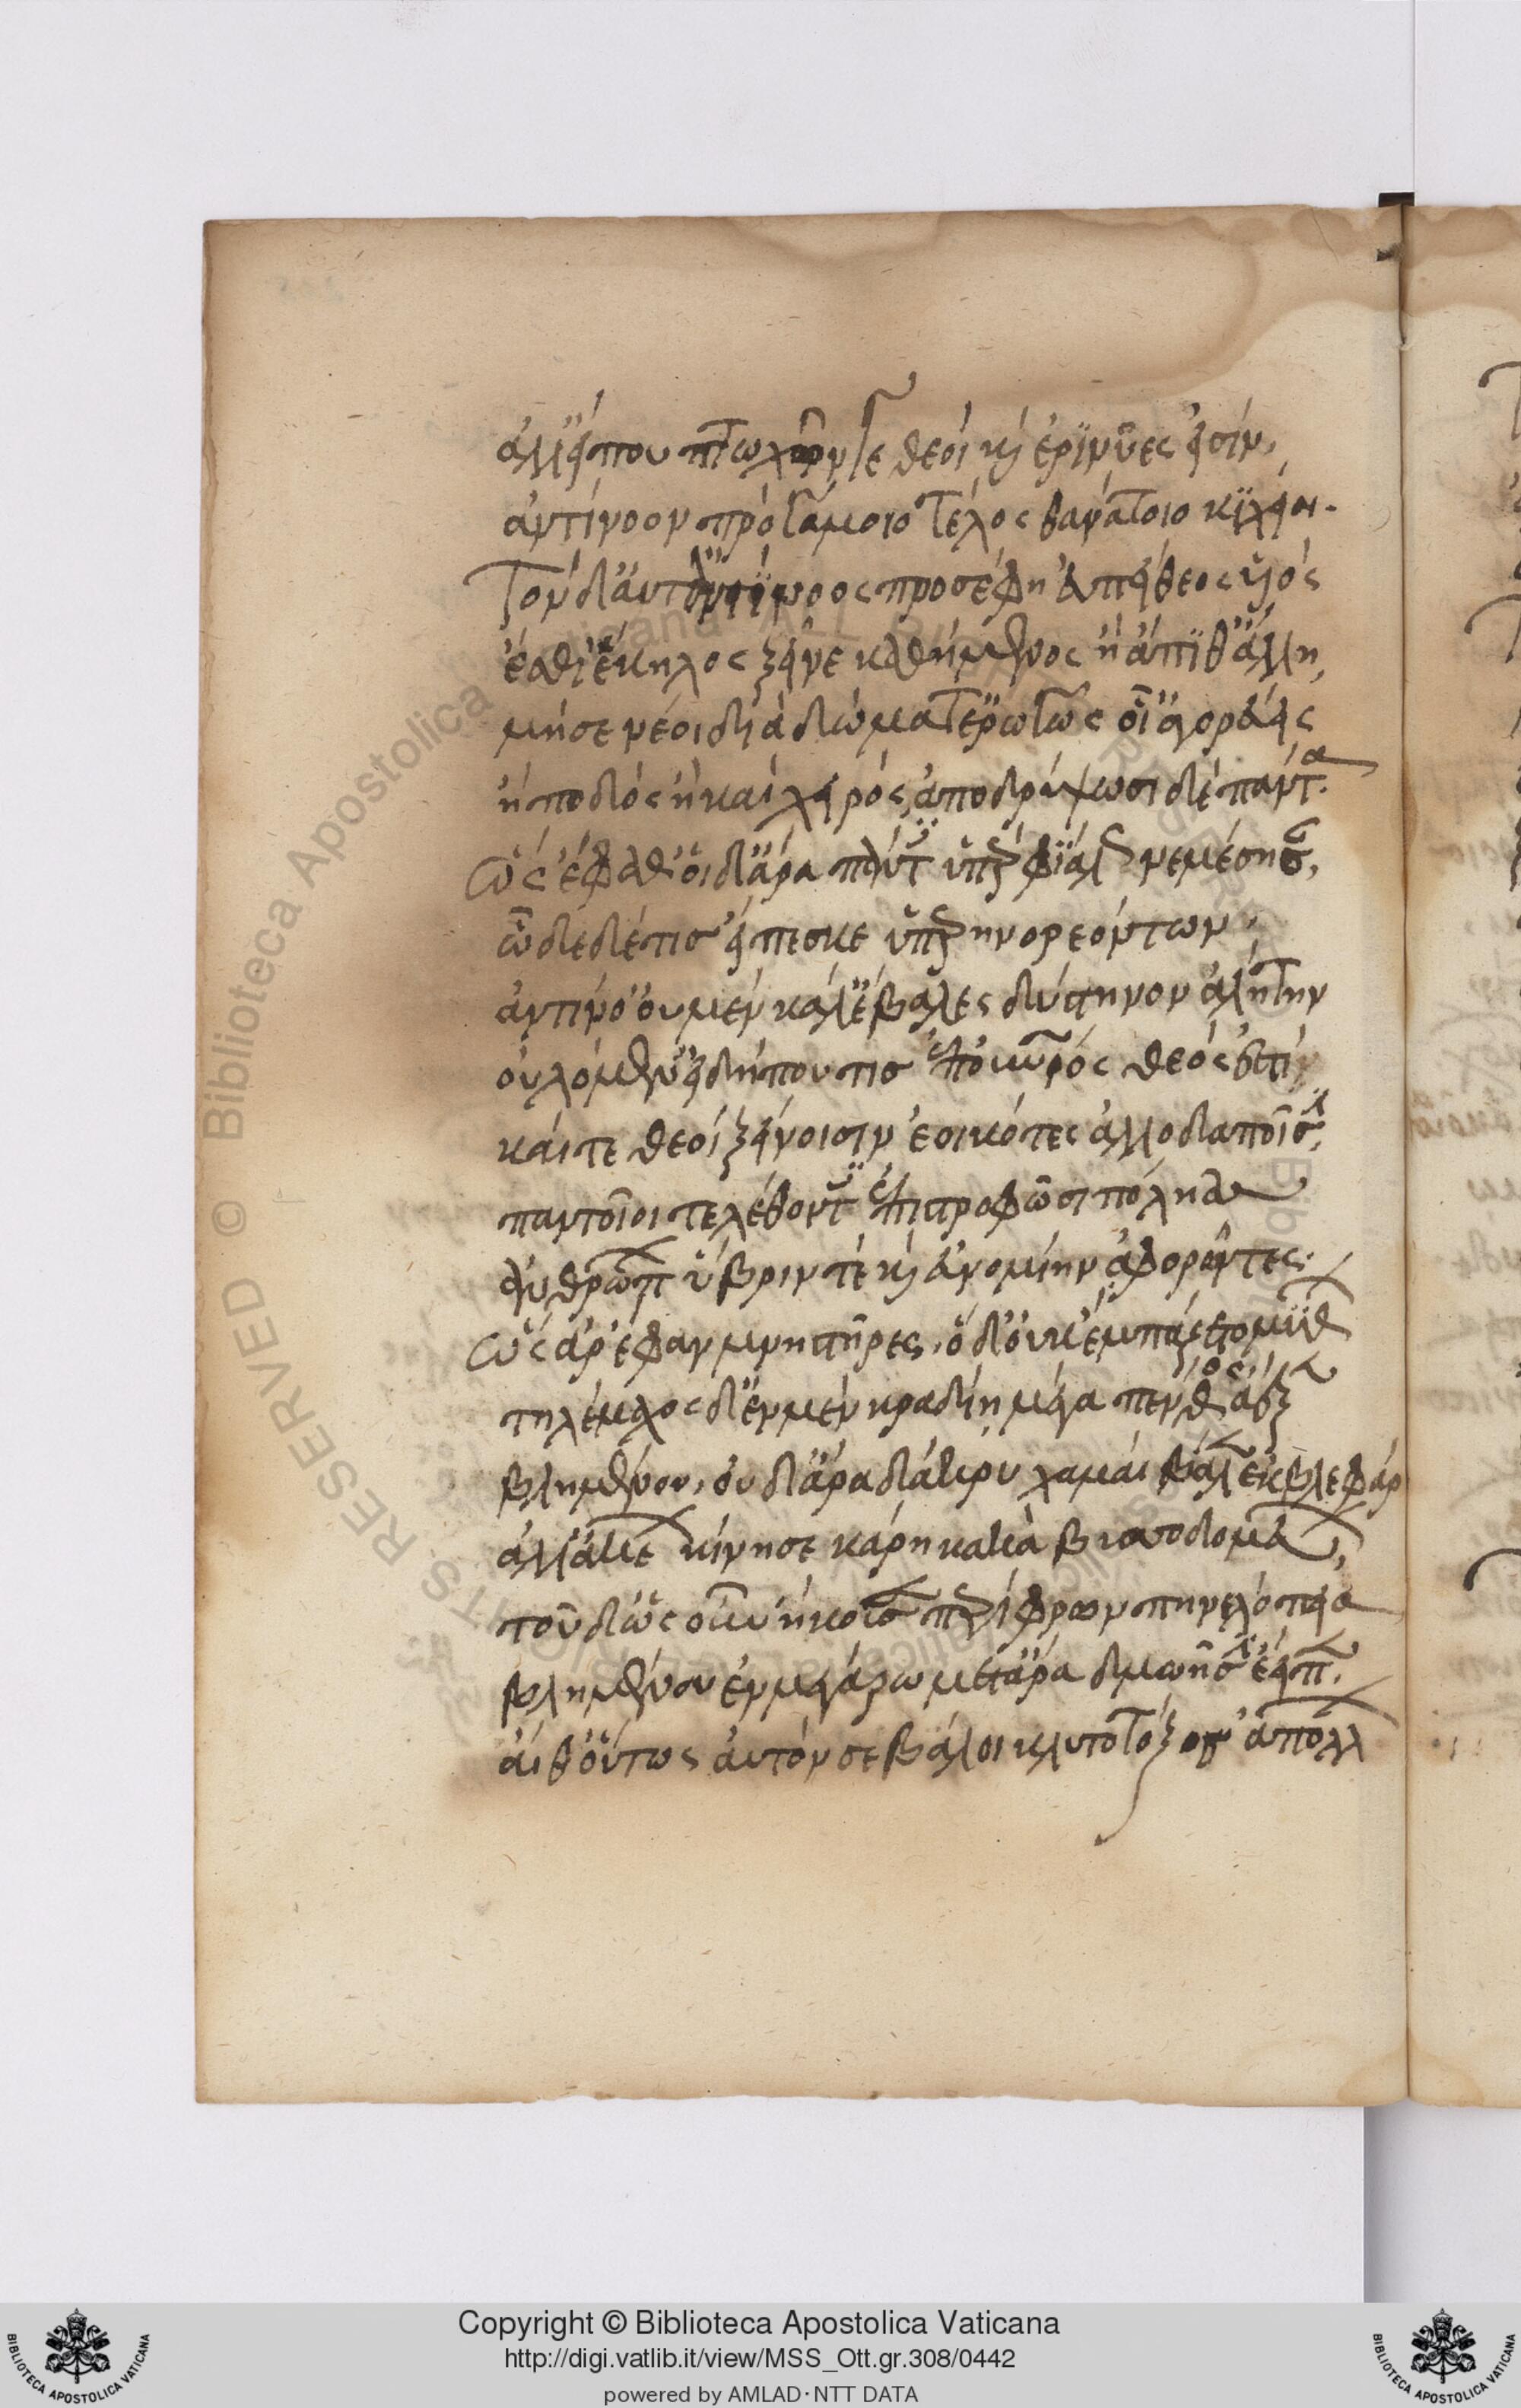 ἀλλ' εἴ που πτωχῶν γε θεοὶ κ ἐρϊνύες εἰσίν,
ἀντίνοον πρὸ γάμοιο τέλος θανάτοιο κϊχείοι.
Τὸν δ' αὖτ' ἀντίνοος προσέφη ἐυπείθεος υἱός
ἔσθϊ' ἕκηλος ξεῖνε καθήμενος ἢ ἄπϊθ' ἄλλη,
μή σε νέοι διὰ δώματ' ἐρύσσωσ' οἷ' ἀγορεύεις
ἢ ποδὸς ἢ καὶ χειρός, ἀποδρύψωσι δὲ πάντα.
ὣς ἔφαθ' οἱ δ' ἄρα πάντ ὑπερφϊάλ νεμέσησ,
ὧδε δέ τισ εἴπεσκε ὑπερηνορεόντων,
ἀντίνο' οὐ μὲν κάλ' ἔβαλες δύστηνον ἀλήτην
οὐλόμεν' εἰ δή πού τισ ἐπουράνιος θεός ἐστίν
καί τε θεοὶ ξείνοισιν ἐοικότες ἀλλοδαποῖσ,
παντοῖοι τελέθοντ ἐπιστροφῶσι πόληας
ἀνθρώπ ὕβριν τὲ κ εὐνομίην ἐφορῶντες.
ὣς ἄρ' ἔφαν μνηστῆρες, ὁ δ' οὐκ ἐμπάζετο μύθ
τηλέμαχος δ' ἐν μὲν κραδίη μέγα πένθος ἄεξ
βλημένου, οὐδ' ἄρα δάκρυ χαμαὶ βάλεν ἐκ βλεφάρ
ἀλλ' ἀκέ κίνησε κάρη κακὰ βυσσοδομ,
τοῦ δ' ὡς οὖν ἤκουσ περίφρων πηνελόπεια
βλημένου ἐν μεγάρω μετ' ἄρα δμωῇσ ἔειπ.
αἴθ' οὕτως αὐτόν σε βάλοι κλυτότοξος ἀπόλλ
Copyright © Biblioteca Apostolica Vaticana
http://digi.vatlib.it/view/MSS_Ott.gr.308/0442
powered by AMLAD·NTT DATA